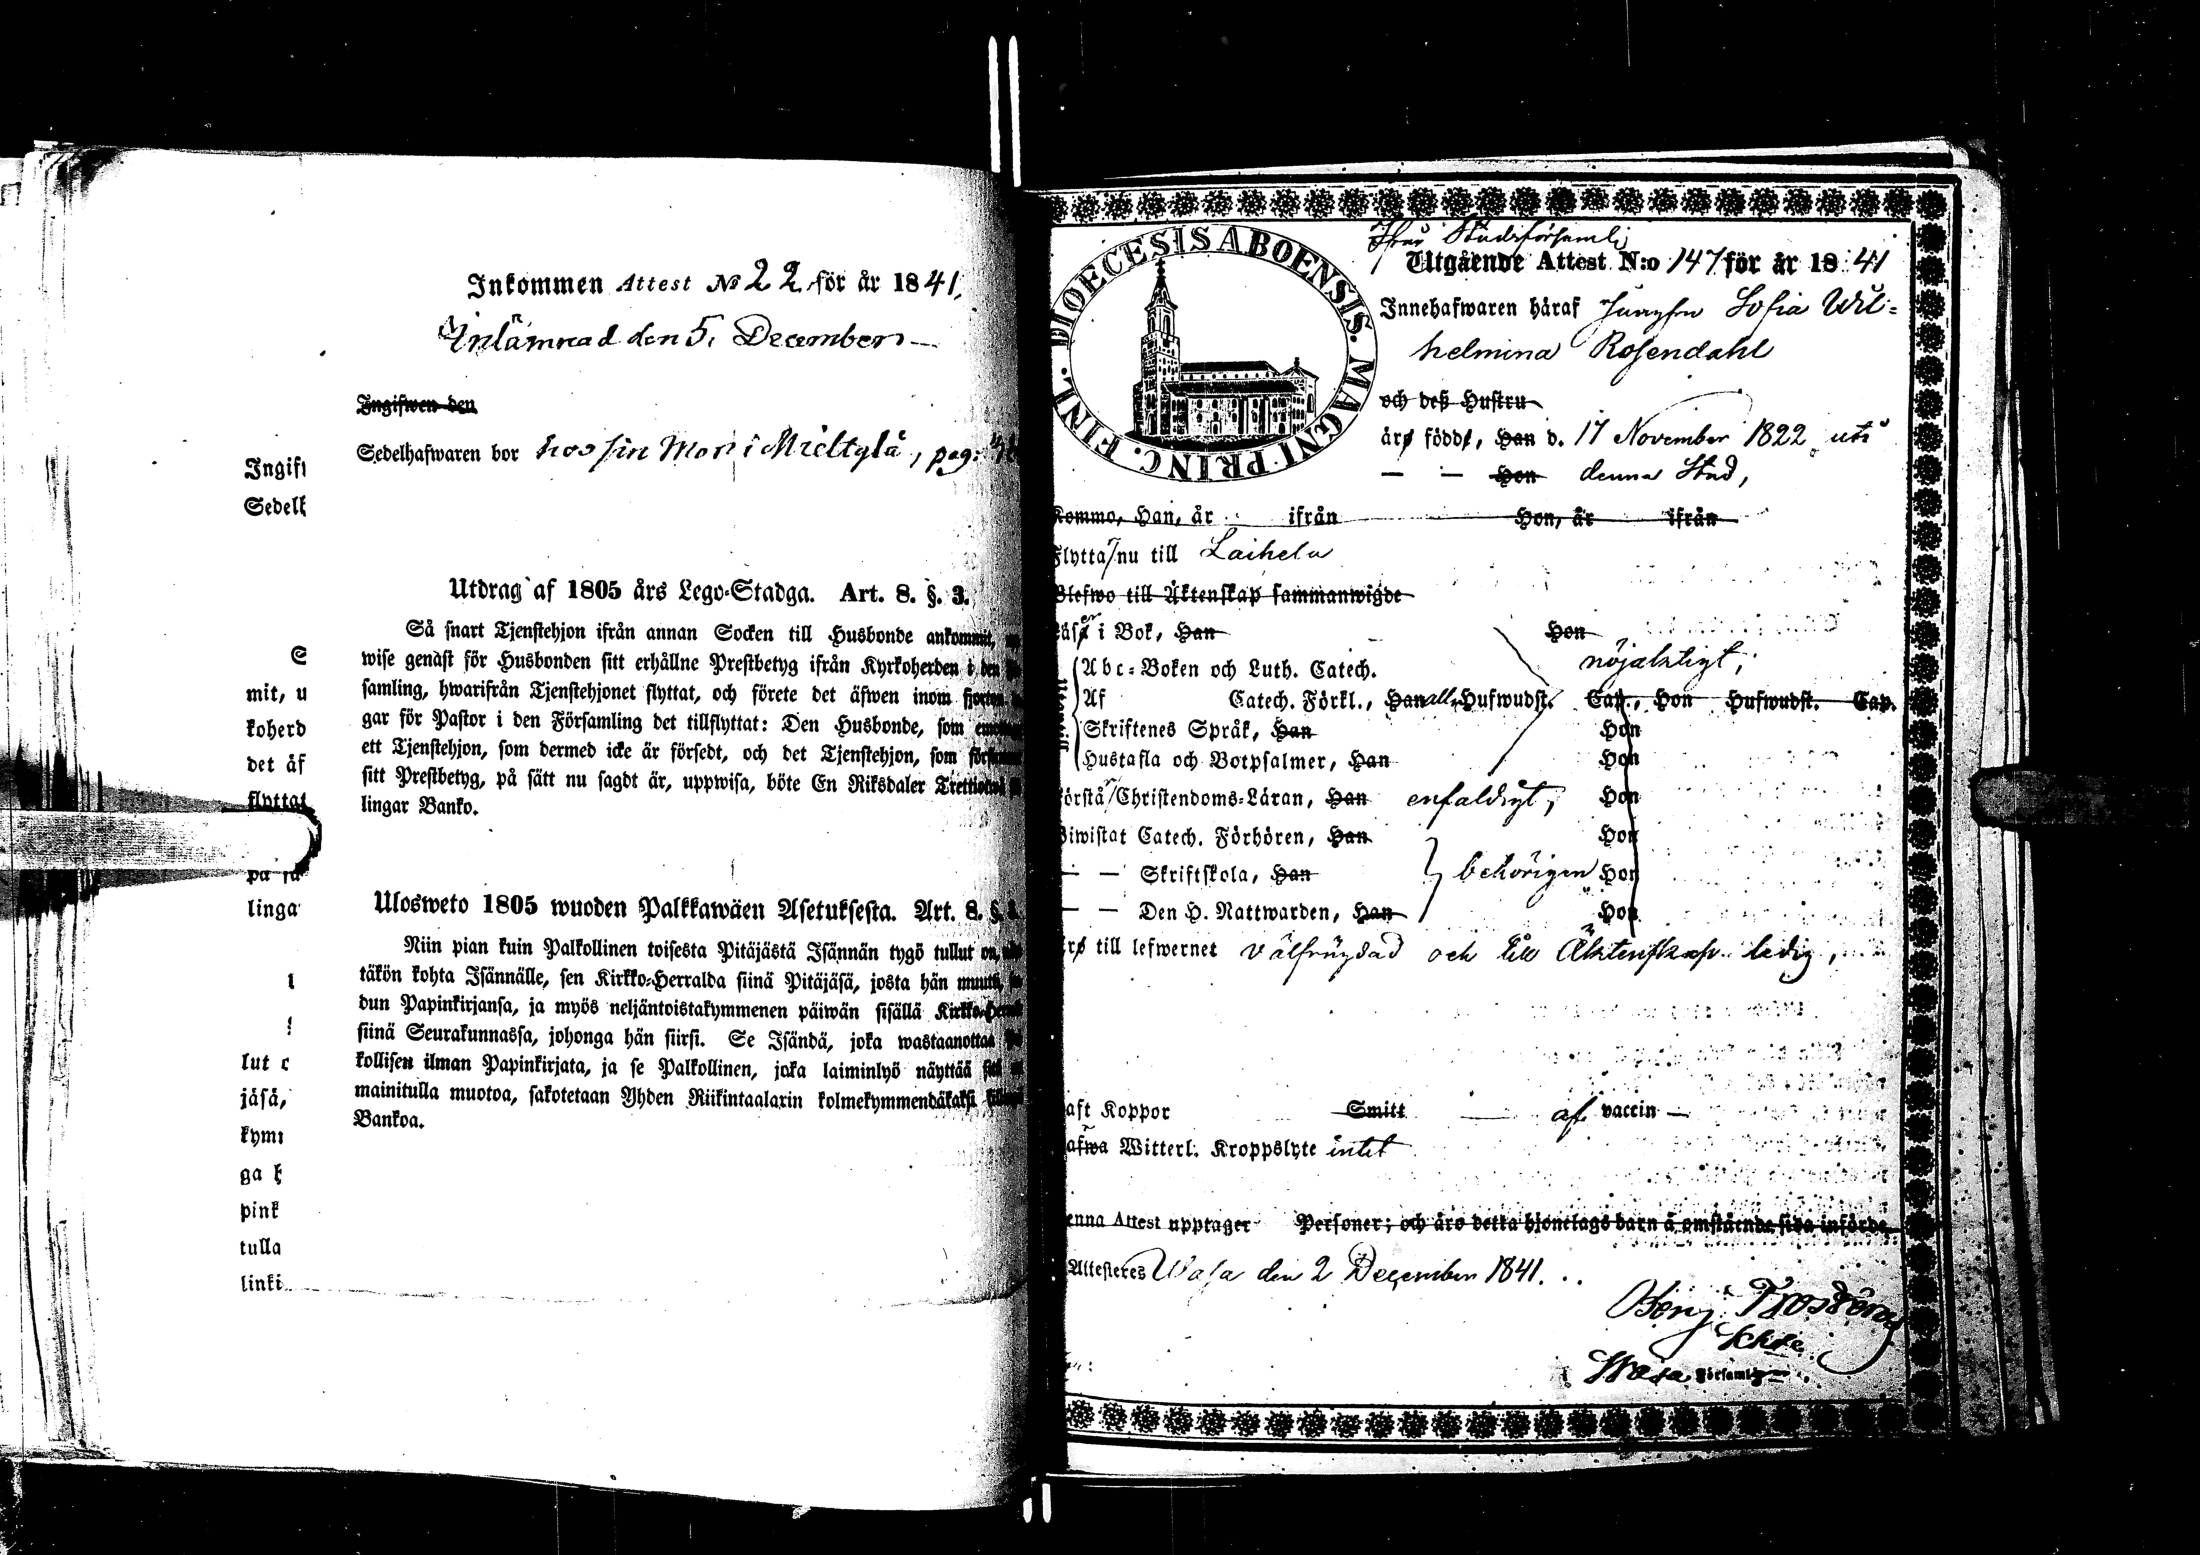 Inkommen Attest No 22 för år 1841,
Inlämnad den 5. December
Ingifwen den
Sedelhafwaren bor hos sin Mor i Mieltylä, pag:
Utdrag af 1805 års Lego-Stadga. Art. 8. §. 3.
Så snart Tjenstehjon ifrån annan Socken till Husbonde ankommit,
wise genast för Husbonden sitt erhållne Prestbetyg ifrån Kyrkoherden i den
samling, hwarifrån Tjenstehjonet flyttat, och förete det äfwen inom fjorton
gar för Pastor i den Församling det tillflyttat: Den Husbonde, som
ett Tjenstehjon, som dermed icke är försedt, och det Tjenstehjon, som
sitt Prestbetyg, på sätt nu sagdt är, uppwisa, böte En Riksdaler Trettiotwå
lingar Banko.
Ulosweto 1805 wuoden Palkkawäen Asetuksesta. Art. 8. §.
Niin pian kuin Palkollinen toisesta Pitäjästä Isännän tygö tullut on,
täkön kohta Isännälle, sen Kirkko-Herralda siinä Pitäjäsä, josta hän
dun Papinkirjansa, ja myös neljäntoistakymmenen päiwän sisällä
siinä Seurakunnassa, johonga hän siirsi. Se Isändä, joka wastaanottaa
kollisen ilman Papinkirjata, ja se Palkollinen, joka laiminlyö näyttää
mainitulla muotoa, sakotetaan Yhden Riikintaalarin kolmekymmendäkaksi
Bankoa.
Ingif
Sedelh
mit, u
koherd
det äf
flyttat
på sä
linga
lut o
jäsä,
kym
ga h
pink
tulla
linki
DIOECESIS ABOENSIS. MAGNI PRINC. FINL.
Ifrån Stadsförsamli
Utgående Attest N:o 147 för år 1841
Innehafwaren häraf Jungfru Sofia Wil-
helmina Rosendahl
och deß Hustru
äro född, Han d. 17 November 1822 uti
— — Hon denna Stad,
Kommo, Han, år ifrån Hon, år ifrån
Flyttar nu till Laihela
Blefwo till Äktenskap sammanwigde
Läser i Bok, Han Hon
Abc-Boken och Luth. Catech. nöjaktigt,
Af Catech. Förkl., Han alla Hufwudst. Cap., Hon Hufwudst. Cap.
Skriftenes Språk, Han Hon
Hustafla och Botpsalmer, Han Hon
Förstår Christendoms-Läran, Han enfaldigt, Hon
Biwistat Catech. Förhören, Han Hon
— — Skriftskola, Han behörigen Hon
— — Den H. Nattwarden, Han Hon
Är till lefwernet välfrägdad och till Äktenskap ledig,
Haft Koppor Smitt — af vaccin —
Hafwa Witterl. Kroppslyte intet
Denna Attest upptager Personer; och äro detta hjonelags barn å omstående sida införde.
Attesteres Wasa den 2 December 1841.
Wasa Församling